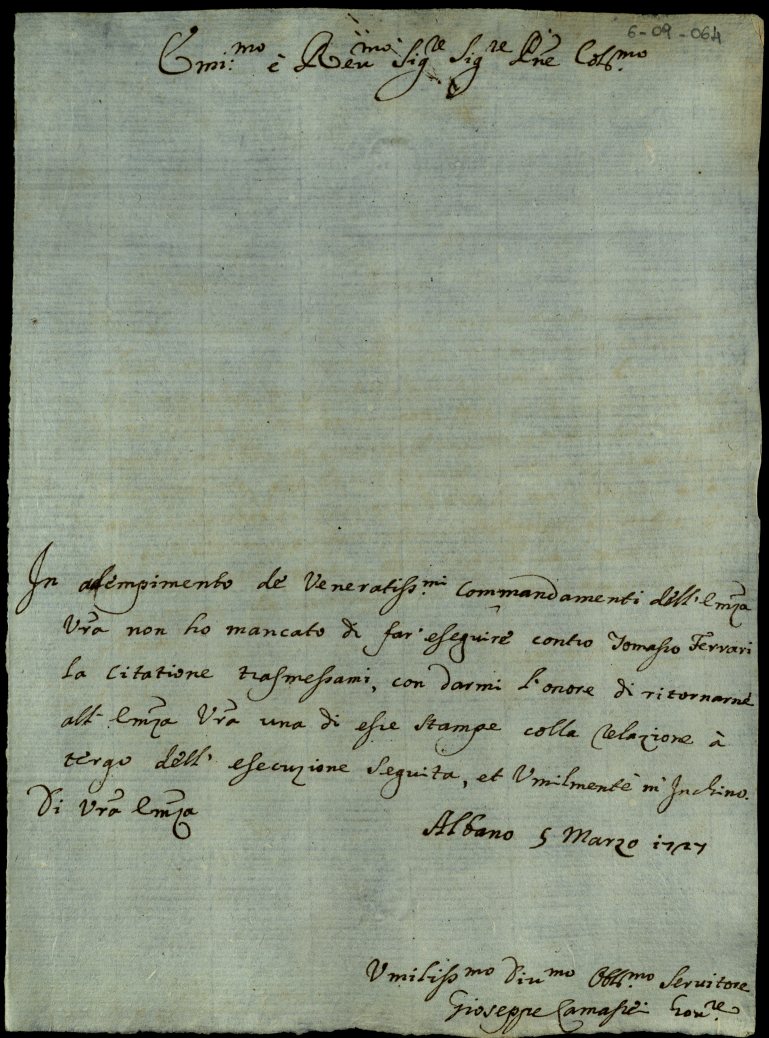 6-09-064
Emi:mo è Reu:mo Sigre Sigre Pne Colmo
In adempimento de' Veneratiss:mi Commandamenti dell'Emza
Vrã non ho mancato di far' eseguire contro Tomasso Ferrari
la Citatione trasmessami, con darmi l'onore di ritornarne
all' Emza Vrã una di esse stampe colla relazione à
tergo dell' esecuzione seguita, et Umilmente m' Inchino.
Di Vrã Emza
Albano 5 Marzo 1727
Umilissmo Diumo Obblmo Seruitore
Gioseppe Gou:re